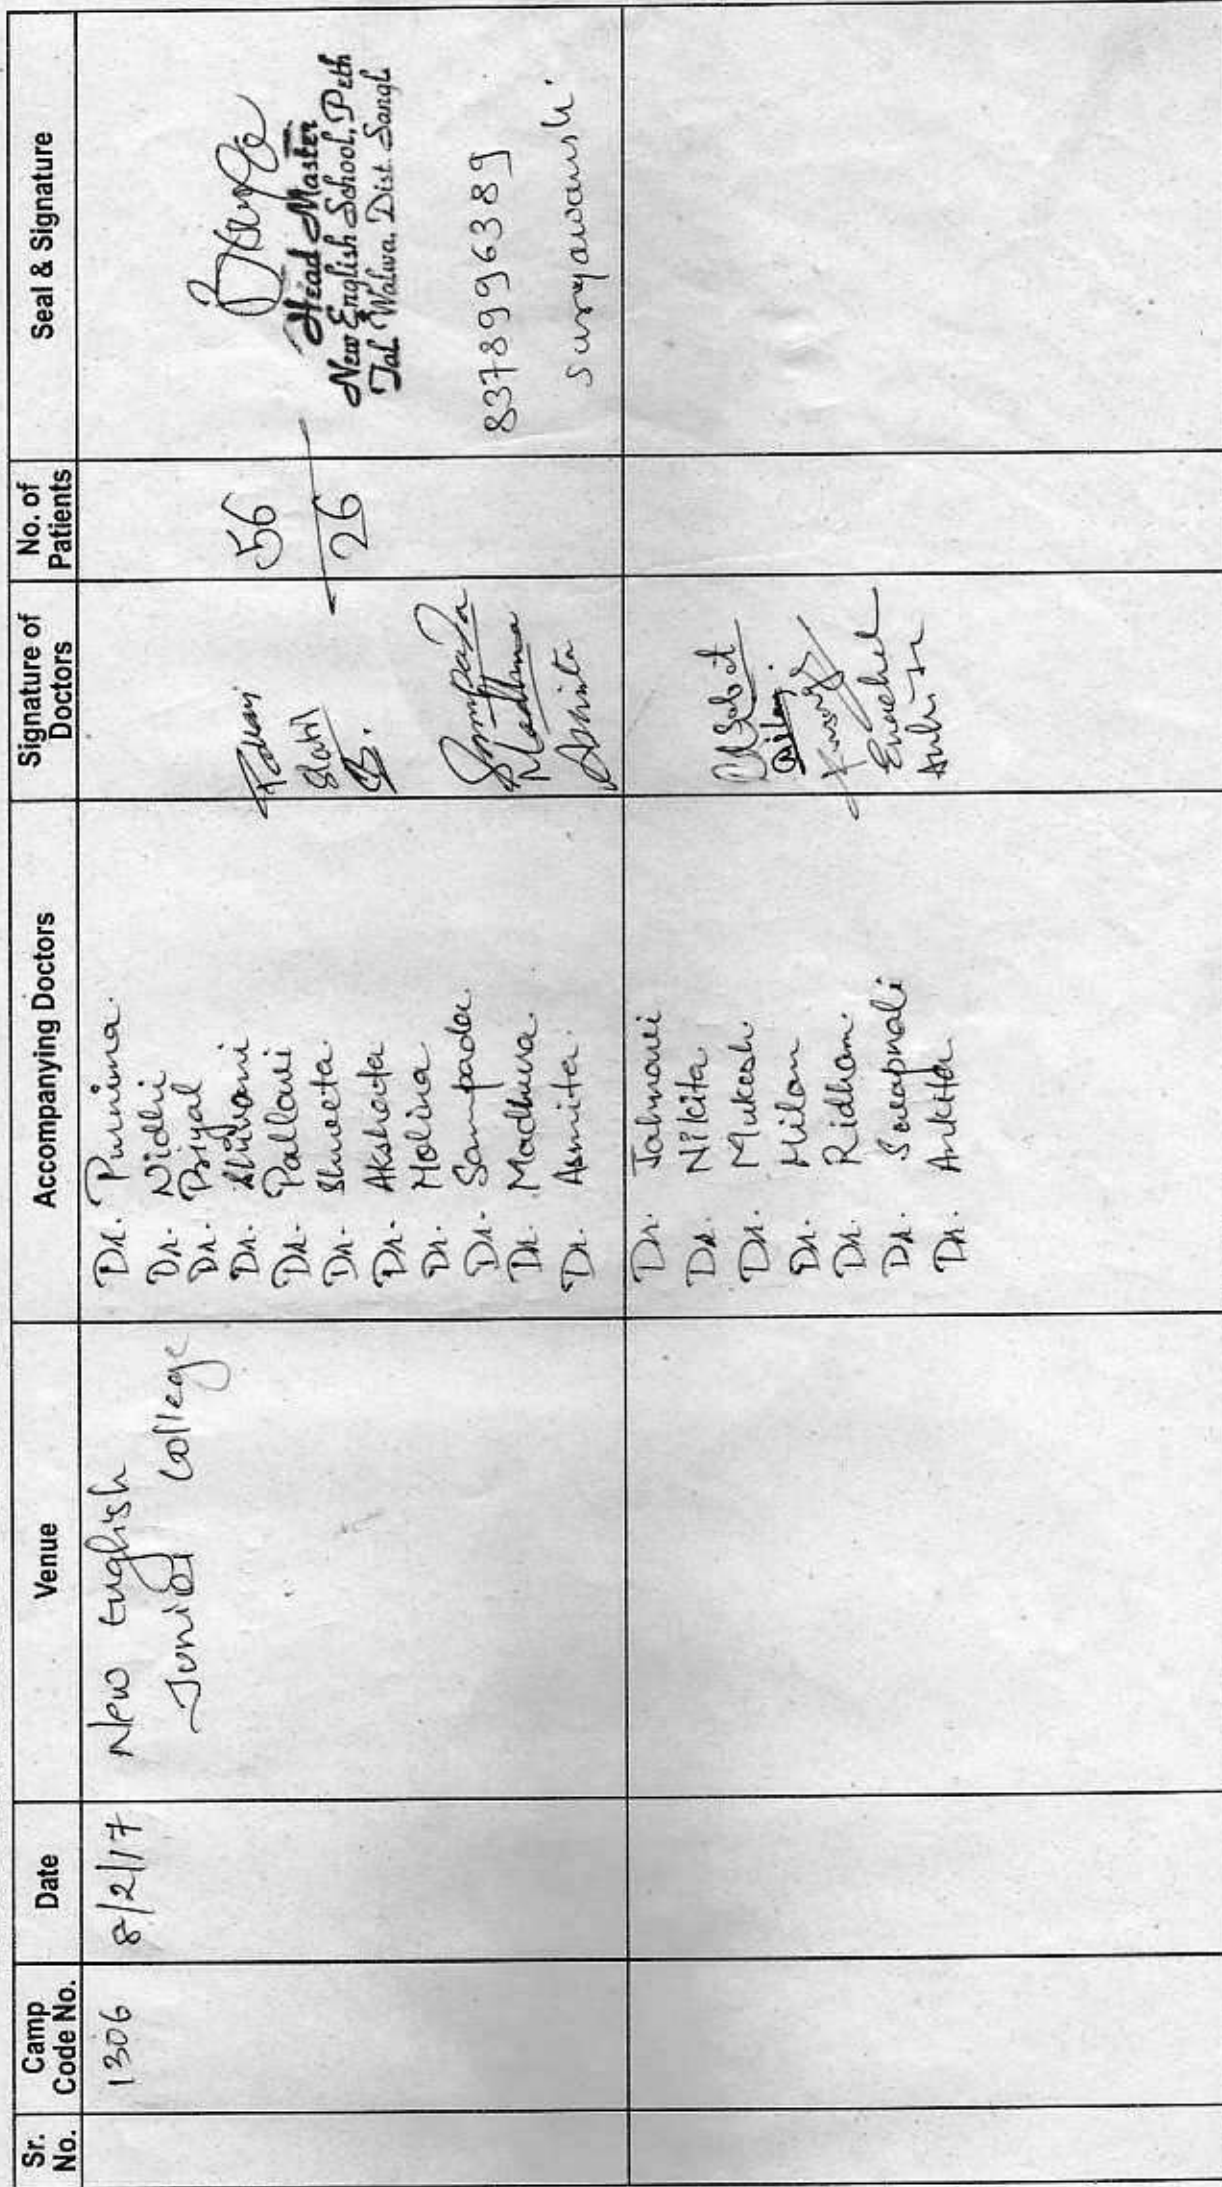 Sr. No.
Camp Code No.
Date
Venue
Accompanying Doctors
Signature of Doctors
No. of Patients
Seal & Signature
1306
8/2/17
New English
Junior College
Dr. Purnima.
Dr. Nidhi
Dr. Priyal
Dr. Shivani
Dr. Pallavi
Dr. Shweta
Dr. Akshata
Dr. Molina
Dr. Sampada.
Dr. Madhura.
Dr. Asmita.
Sampada
Madhura
Asmita
56
26
Head Master
New English School, Peth
Tal. Walwa. Dist. Sangli
8378996389
suryawanshi
Dr. Jahnavi
Dr. Nikita.
Dr. Mukesh.
Dr. Milan
Dr. Ridham.
Dr. Swapnali
Dr. Ankita.